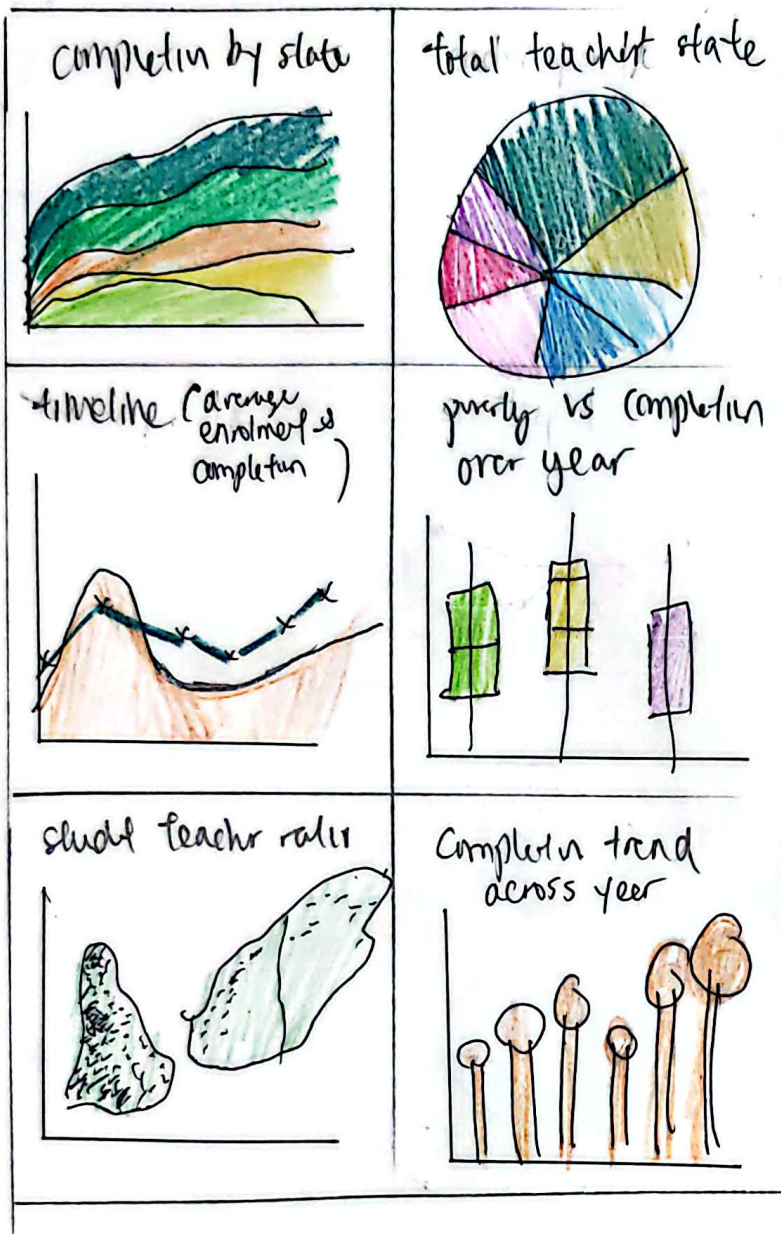 completin by state
total teachers state
timeline (average
enrolment &
completion )
poverty vs completion
over year
studt teachr ratio
Completin trend
across year